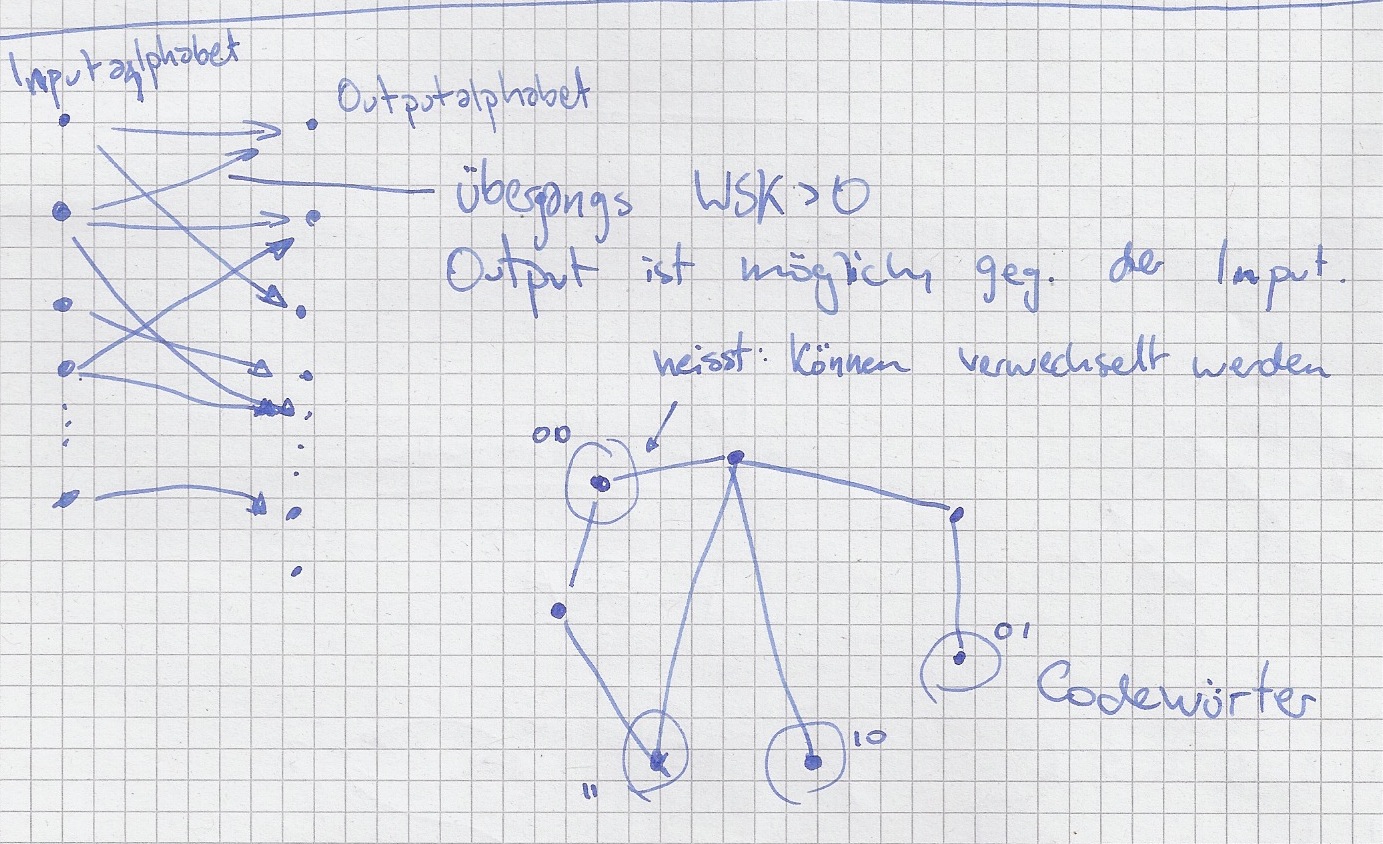 Inputalphabet
Outputalphabet
Übergangs WSK > 0
Output ist möglich geg. der Input.
heisst: können verwechselt werden
00
01
Codewörter
10
11